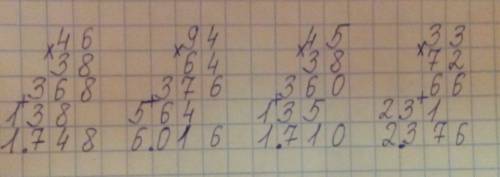 ×46 ×94 ×45 ×33
38 64 38 72
+368 +376 +360 66
138 564 135 +231
1.748 6.016 1.710 2.376